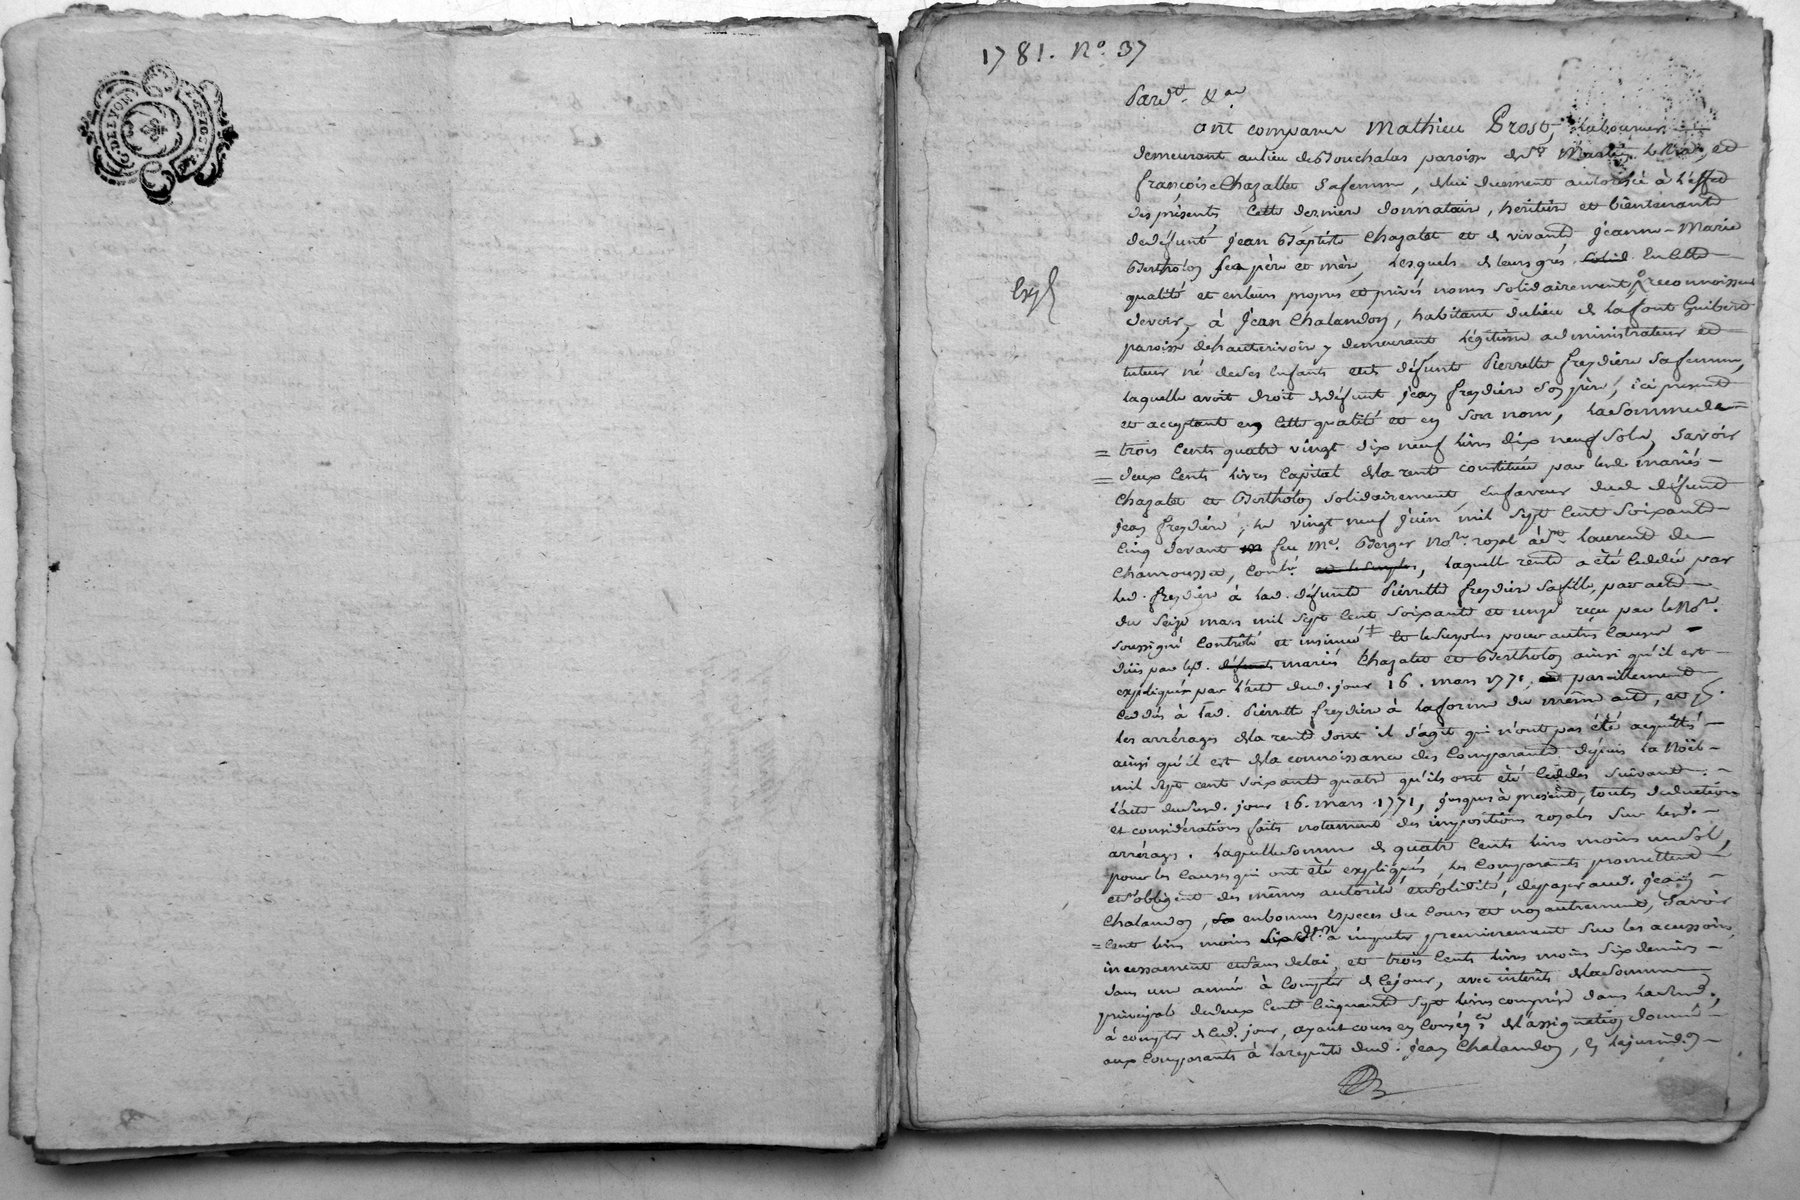 1781. No. 37
Pardt. &a.
ont comparu Mathieu Brost, laboureur
demeurant au lieu de Bouchalas paroisse de St. Martin et
françoise Chazallet sa femme, de lui duement autorisée à l'effet
des présentes cette derniere donnataire, heritiere et bientenante
de défunt jean Baptiste Chazalet et de vivante jeanne-Marie
Bertholon père et mère, lesquels de leurs grés solid. en cette
qualité et en leurs propres et privés noms solidairement reconnoissent
devoir, à jean Chalandon, habitant du lieu de la font Guibert
paroisse de hauterivoire y demeurant légitime administrateur et
tuteur né de ses enfants et de défunte Pierrette freydiere sa femme,
laquelle avoit droit de défunt jean freydiere son père, ici present
et acceptant en cette qualité et en son nom, la somme de
trois cents quatre vingt dix neuf livres dix neuf sols, savoir
deux cents livres capital de la rente constituée par lesd. mariés
Chazalet et Bertholon solidairement, en faveur dud. défunt
jean freydiere, le vingt neuf juin mil sept cent soixante
cinq devant feu Me. Berger Nore. royal à St. laurent de
Chamousset, contlé. et le surplus, laquelle rente a été cedée par
led. freydiere à lad. défunte Pierrette freydiere sa fille, par acte
du seize mars mil sept cent soixante et onze reçu par le Nore.
soussigné contrôlé et insinué ‡ et le surplus pour autres causes
dues par lesd. défunts mariés Chazalet et Bertholon ainsi qu'il est
expliqué par l'acte dud. jour 16. mars 1771, et pareillement
cedés à lad. Pierrette freydiere à la forme du même acte, et
les arrérages de la rente dont il s'agit qui n'ont pas été acquittés
ainsi qu'il est de la connoissance des comparants depuis la Noël
mil sept cent soixante quatre qu'ils ont été cedés suivant
l'acte dususd. jour 16. mars 1771, jusques à présent, toutes deductions
et considérations faites notament des impositions royales sur lesd.
arrérages. laquelle somme de quatre cents livres moins un sol,
pour les causes qui ont été expliqués, les comparants promettent
et s'obligent des mêmes autorité et solidité, de payer aud. jean
Chalandon, en bonnes especes du cours et non autrement, savoir
cent livres moins six drs. à imputer premierement sur les accessoires
incessament et sans delai, et trois cents livres moins six deniers
dans une année à compter de ce jour, avec interêts de la somme
principale de deux cent cinquante sept livres comprise dans lasusd.,
à compter de ced. jour, ayant cours en conséqce. de l'assignation donnée
aux comparants à la requête dud. jean Chalandon, en